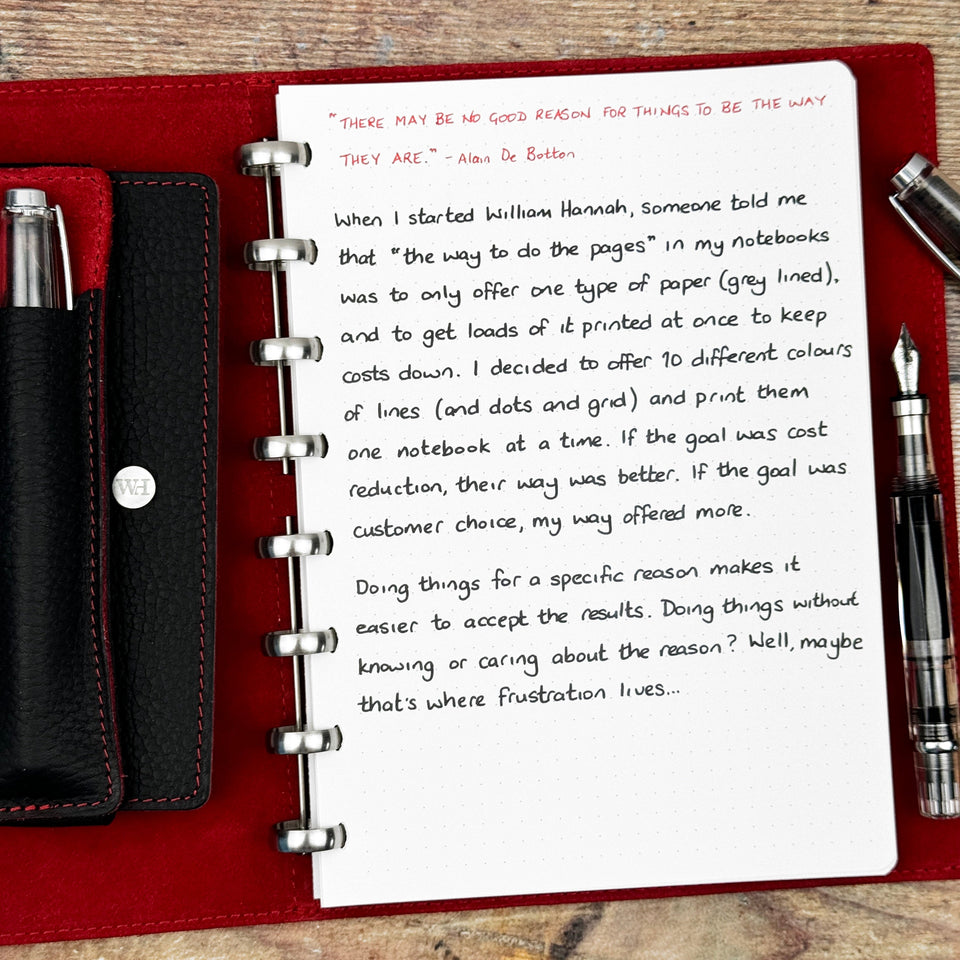 "THERE MAY BE NO GOOD REASON FOR THINGS TO BE THE WAY
THEY ARE." - Alain De Botton
When I started William Hannah, someone told me
that "the way to do the pages" in my notebooks
was to only offer one type of paper (grey lined),
and to get loads of it printed at once to keep
costs down. I decided to offer 10 different colours
of lines (and dots and grid) and print them
one notebook at a time. If the goal was cost
reduction, their way was better. If the goal was
customer choice, my way offered more.
Doing things for a specific reason makes it
easier to accept the results. Doing things without
knowing or caring about the reason? Well, maybe
that's where frustration lives...
WH